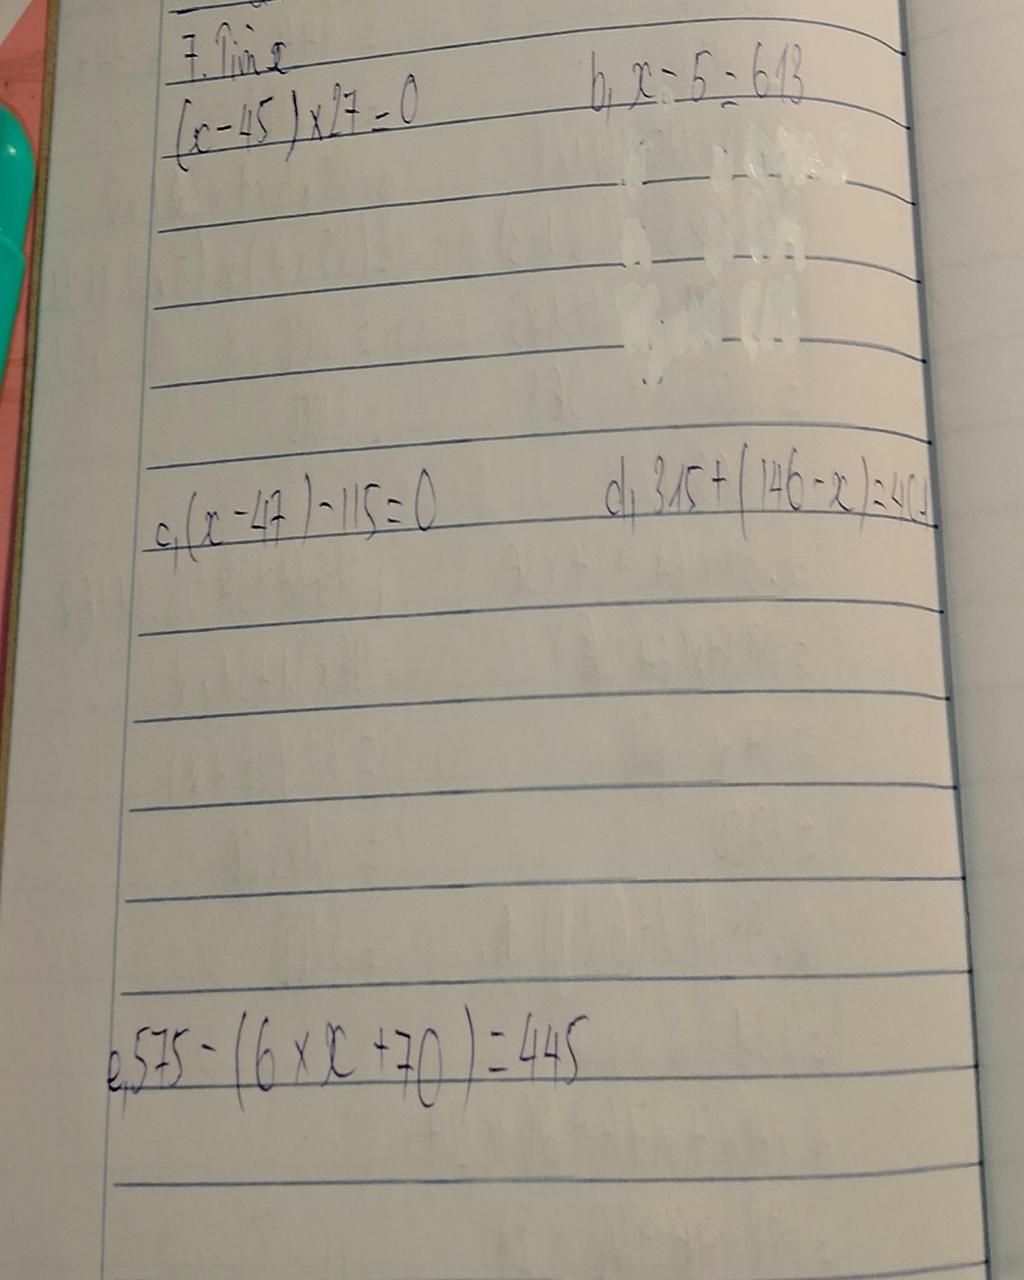 7. Tìm x
(x-45)×27=0 b, x-5=613
c,(x-47)-115=0 d, 315+(146-x)=401
e,575-(6×x+70)=445